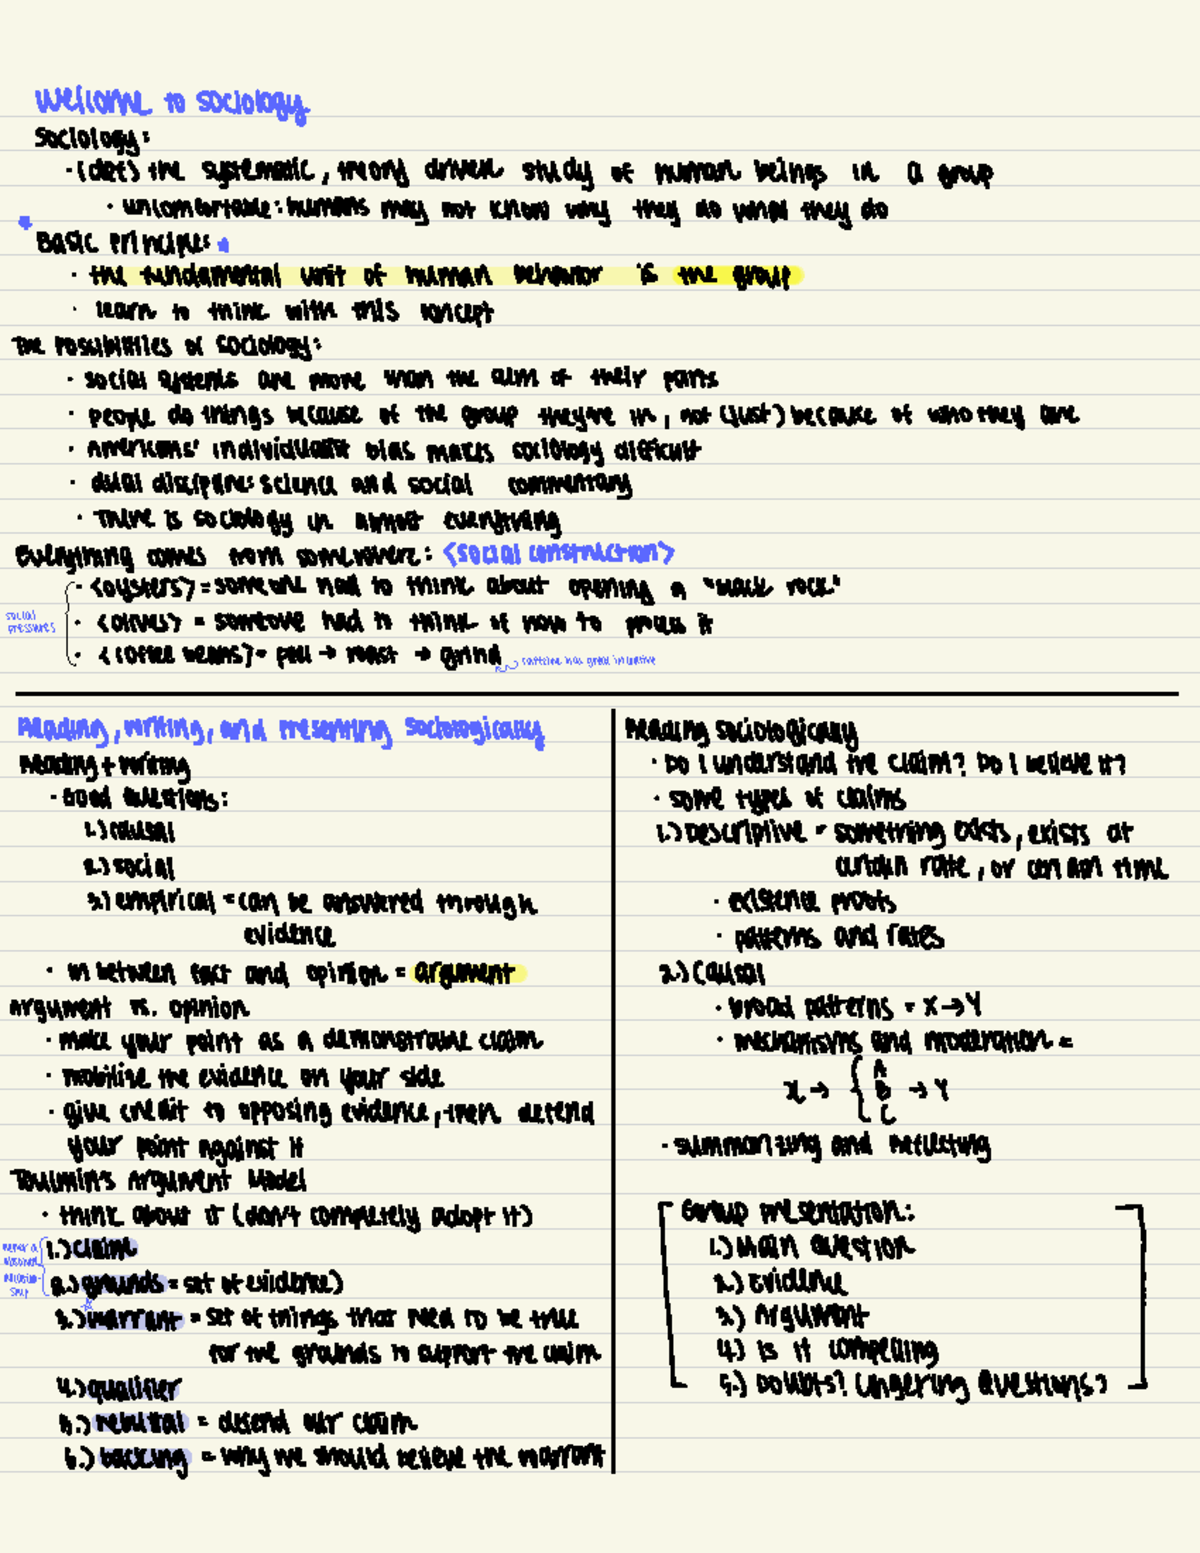 Welcome to sociology
Sociology:
· (def) the systematic, theory driven study of human beings in a group
· uncomfortable: humans may not know why they do what they do
Basic Principle:
· the fundamental unit of human behavior is the group
· learn to think with this concept
The Possibilities of Sociology:
· social systems are more than the sum of their parts
· people do things because of the group they're in, not (just) because of who they are
· Americans' individualist bias makes sociology difficult
· dual discipline: science and social commentary
· There is sociology in almost everything
Everything comes from somewhere: <social construction>
social pressures
· <oysters> = someone had to think about opening a "black rock"
· <olives> = someone had to think of how to process it
· <coffee beans> = peel → roast → grind
caffeine has great incentive
Reading, writing, and presenting sociologically
Reading + writing
· Good Questions:
1.) causal
2.) social
3.) empirical = can be answered through
evidence
· in between fact and opinion = argument
Argument vs. opinion
· make your point as a demonstrable claim
· mobilize the evidence on your side
· give credit to opposing evidence, then defend
your point against it
Toulmin's Argument Model
· think about it (don't completely adopt it)
1.) claim
2.) grounds = set of evidence)
3.) warrant = set of things that need to be true
for the grounds to support the claim
4.) qualifier
5.) rebuttal = defend our claim
6.) backing = why we should believe the warrant
Reading sociologically
· Do I understand the claim? Do I believe it?
· some types of claims
1.) Descriptive = something exists, exists at
certain rate, or certain time
· existence proofs
· patterns and rates
2.) Causal
· broad patterns = X → Y
· mechanisms and moderation =
A
x → { B → Y
C
· summarizing and reflecting
Group presentation:
1.) Main Question
2.) Evidence
3.) Argument
4.) Is it compelling
5.) Doubts? Lingering Questions?